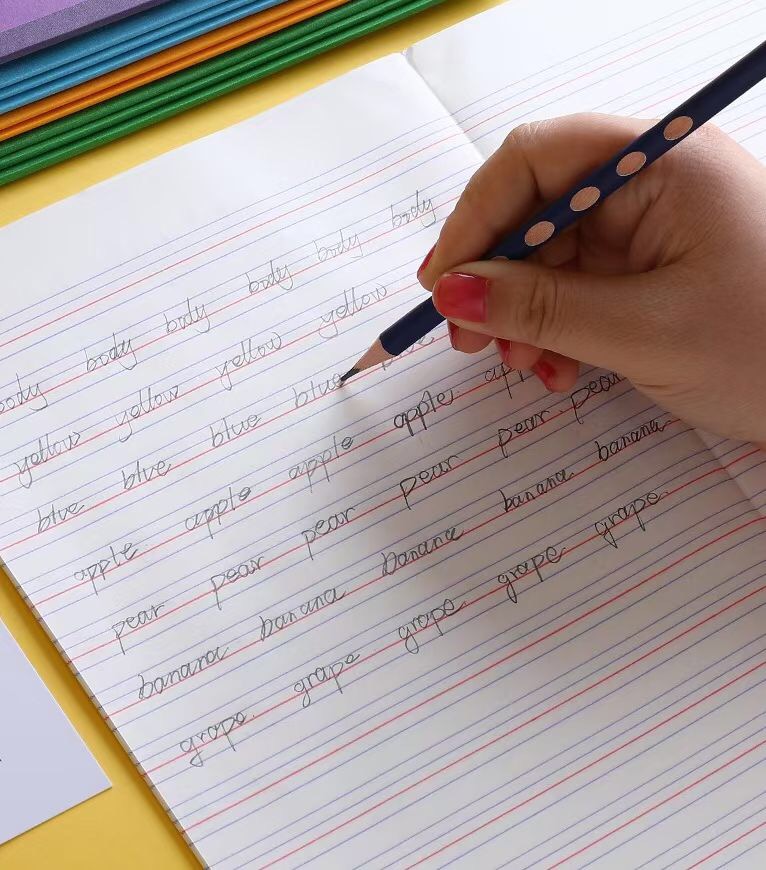 body body body body body body
yellow yellow yellow yellow
blue blue blue blue blue
apple apple apple apple app
pear pear pear pear pear. pear
banana banana banana banana banana
grape. grape grape grape grape.